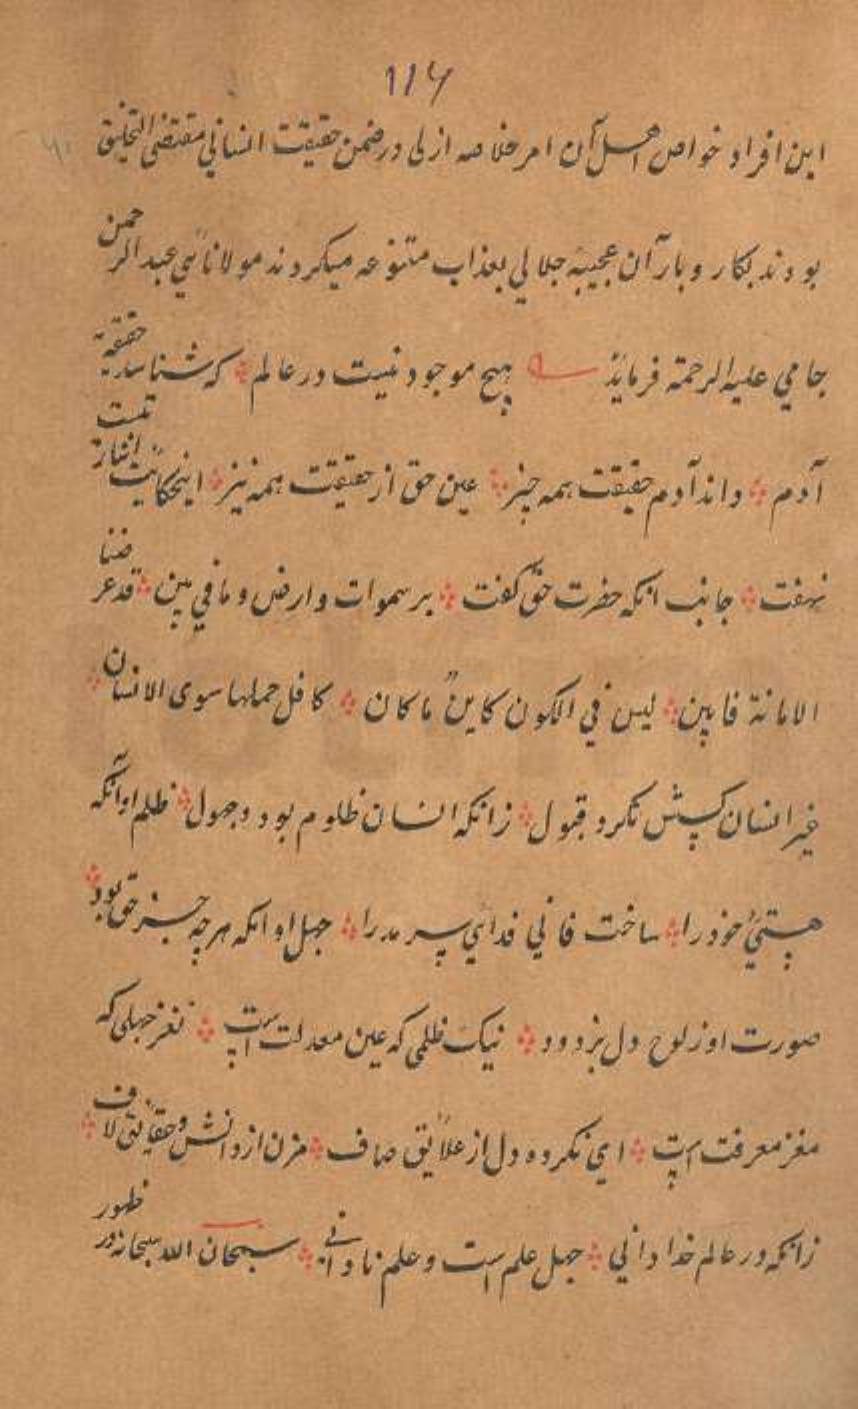 ۱۱۶
این افراد خواص اصل آن امر خلاصه ازلی در ضمن حقیقت انسانی مقتضی التخلیق
بودند بکار و بار آن عجیبۀ جلالی بعذاب متنوعه میکردند مولانا عبد الرحمن
جامی علیه الرحمة فرماید هیچ موجود نیست در عالم که شناسد حقیقة
آدم داند آدم حقیقت همه چیز عین حق از حقیقت همه نیز
نهفت جانب انکه حضرت حق گفت بر سموات و ارض و ما فی بین قد عرضنا
الامانة فابین لیس فی الکون کاین ما کان کافل حملها سوی الانسان
غیر انسان کسش نکرد قبول زانکه انسان ظلوم بود و جهول ظلم او آنکه
هستیٔ خود را ساخت فانی فدای سرمد را جهل او انکه هرچه جز حق بود
صورت او ز لوح دل بزدود نیک ظلمی که عین معدلت است نغز جهلی که
مغز معرفت است ای نکرده دل از علایق صاف مزن از دانش و حقایق لاف
زانکه در عالم خدا دانی جهل علم است و علم نادانی سبحان الله سبحانه در ظهور